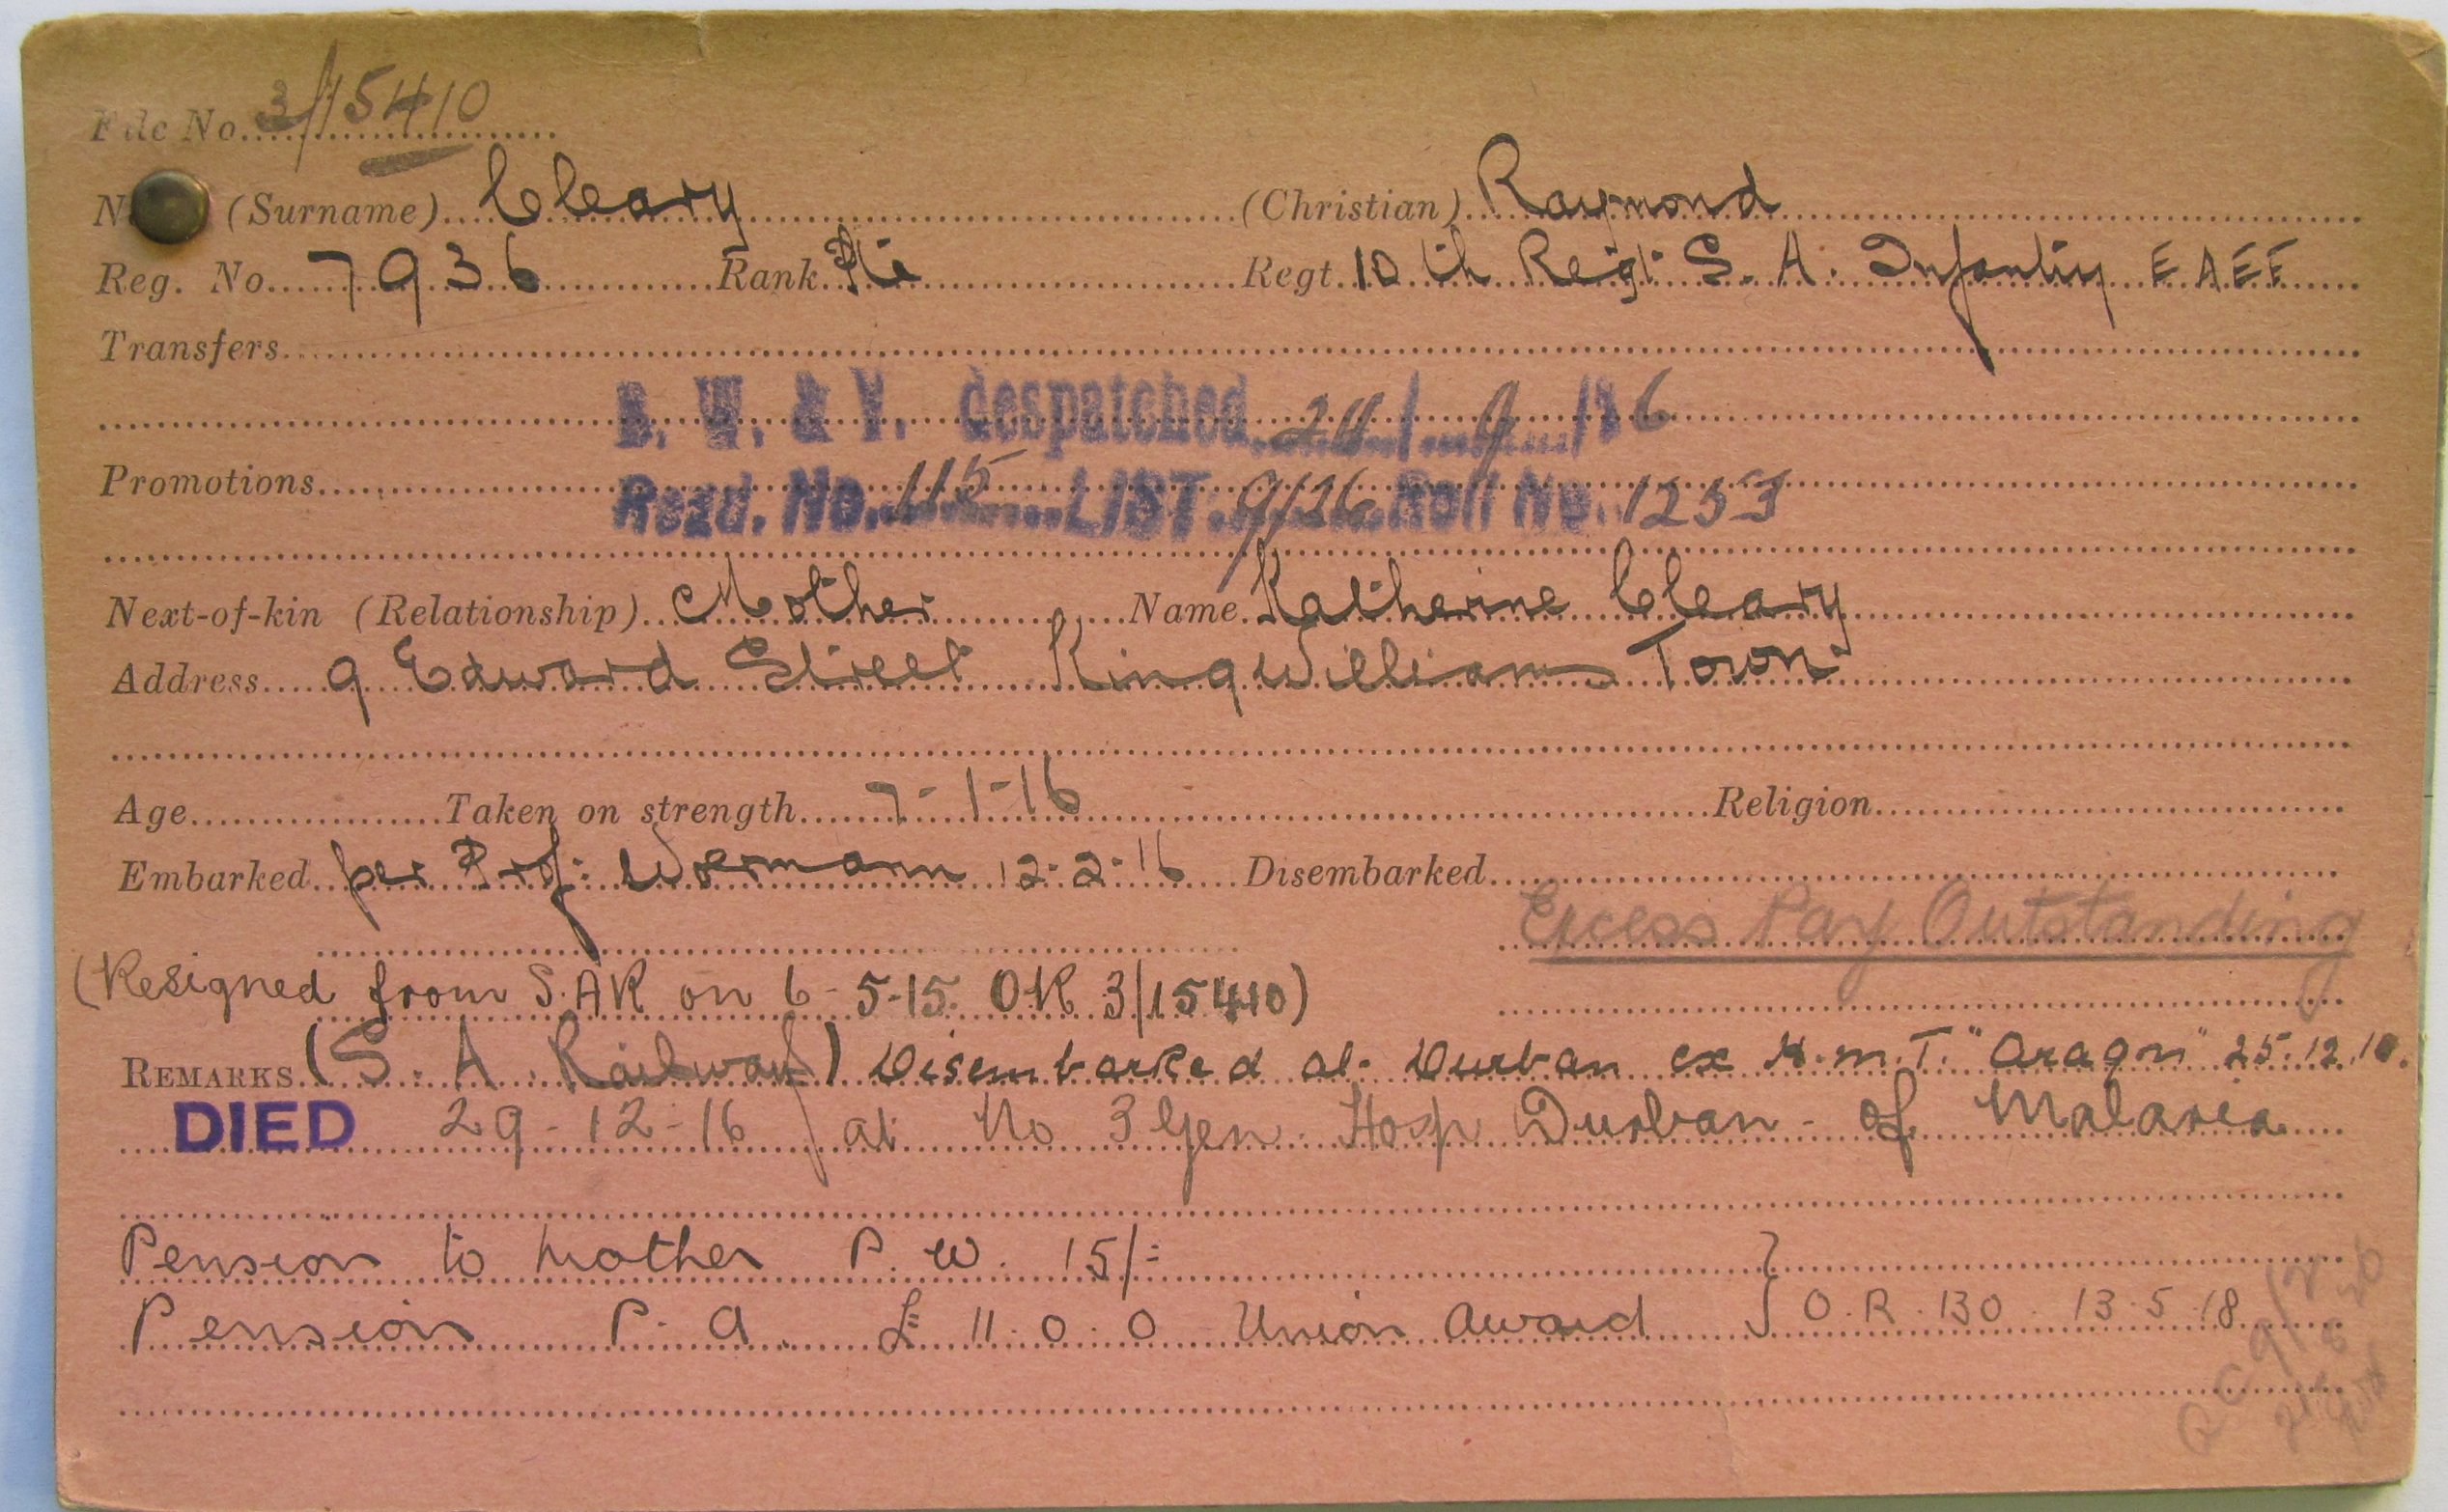 File No. 3/15410
(Surname) Cleary (Christian) Raymond
Reg. No. 7936 Rank Pte Regt. 10th Regt. S. A. Infantry E A E F
Transfers
B. W. & V. despatched 26/9/26
Regd. No. 115 LIST. 9/26 Roll No. 1253
Promotions
Next-of-kin (Relationship) Mother Name Katherine Cleary
Address 9 Edward Street King Williams Town
Age Taken on strength 7-1-16 Religion
Embarked per Prof: Woermann 12-2-16 Disembarked
Excess Pay Outstanding
(Resigned from S.A.R on 6-5-15. O.R 3/15410)
REMARKS (S. A. Railway) Disembarked at Durban ex H.M.T. "Aragon" 25.12.16.
DIED 29-12-16 at No 3 Gen. Hosp Durban - of Malaria
Pension to mother P. W. 15/=
Pension P. A. £ 11. 0. 0 Union Award } O.R. 130 13.5.18